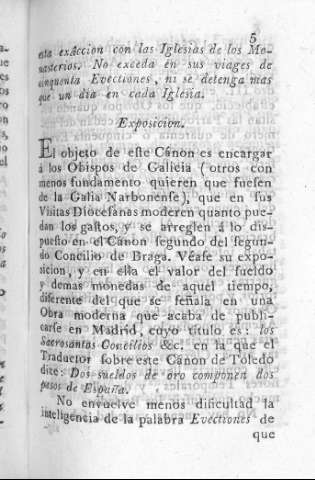 5
esta exâccion con las Iglesias de los Mo-
nasterios. No exceda en sus viages de
cinquenta Evectiones, ni se detenga mas
que un dia en cada Iglesia.
Exposicion.
El objeto de este Cánon es encargar
á los Obispos de Galicia (otros con
menos fundamento quieren que fuesen
de la Galia Narbonense), que en sus
Visitas Diocesanas moderen quanto pue-
dan los gastos, y se arreglen á lo dis-
puesto en el Cánon segundo del segun-
do Concilio de Braga. Véase su expo-
sicion, y en ella el valor del sueldo
y demas monedas de aquel tiempo,
diferente del que se señala en una
Obra moderna que acaba de publi-
carse en Madrid, cuyo título es: los
Sacrosantos Concilios &c. en la que el
Traductor sobre este Cánon de Toledo
dice: Dos sueldos de oro componen dos
pesos de España.
No envuelve menos dificultad la
inteligencia de la palabra Evectiones de
que